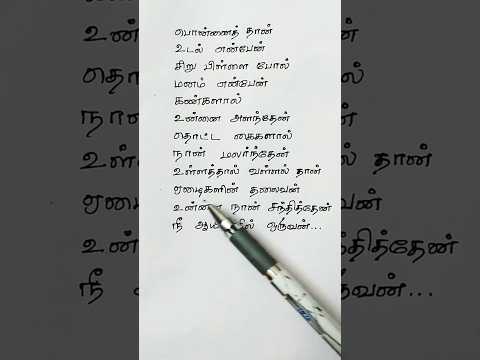 பொன்னைத் தான்
உடல் என்பேன்
சிறு பிள்ளை போல்
மனம் என்பேன்
கண்களால்
உன்னை அளந்தேன்
தொட்ட கைகளால்
நான் மலர்ந்தேன்
உள்ளத்தால் வள்ளல் தான்
ஏழைகளின் தலைவன்
உன்னை நான் சந்தித்தேன்
நீ ஆயிரத்தில் ஒருவன்...